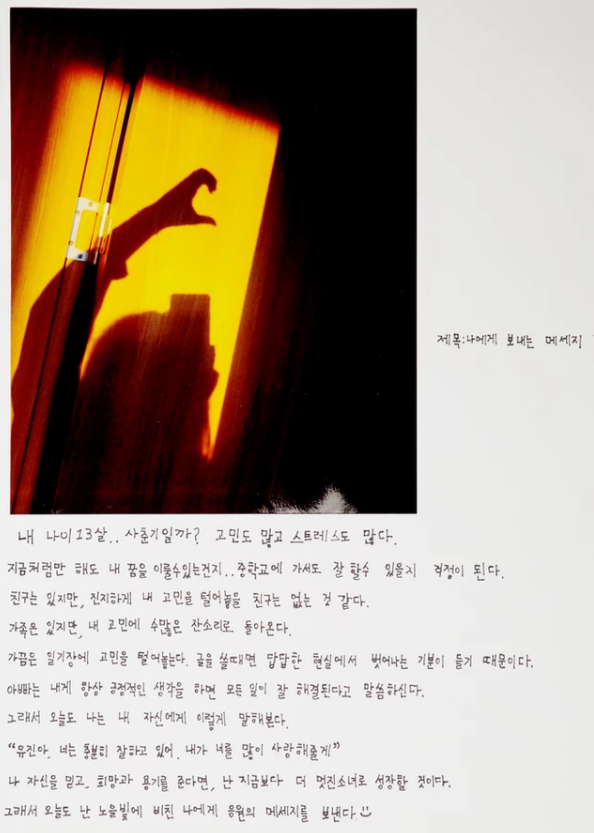 제목:나에게 보내는 메세지
내 나이 13살.. 사춘기일까? 고민도 많고 스트레스도 많다.
지금처럼만 해도 내 꿈을 이룰수있는건지.. 중학교에 가서도 잘 할수 있을지 걱정이 된다.
친구는 있지만, 진지하게 내 고민을 털어놓을 친구는 없는 것 같다.
가족은 있지만, 내 고민에 수많은 잔소리로 돌아온다.
가끔은 일기장에 고민을 털어놓는다. 글을 쓸때면 답답한 현실에서 벗어나는 기분이 들기 때문이다.
아빠는 내게 항상 긍정적인 생각을 하면 모든 일이 잘 해결된다고 말씀하신다.
그래서 오늘도 나는 내 자신에게 이렇게 말해본다.
“유진아, 너는 충분히 잘하고 있어. 내가 너를 많이 사랑해줄게”
나 자신을 믿고, 희망과 용기를 준다면, 난 지금보다 더 멋진소녀로 성장할 것이다.
그래서 오늘도 난 노을빛에 비친 나에게 응원의 메세지를 보낸다.